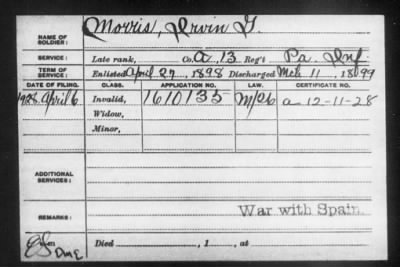 NAME OF SOLDIER: Morris, Irvin G.
SERVICE: Late rank, Co. A, 13 Reg't Pa. Inf
TERM OF SERVICE: Enlisted April 27, 1898 Discharged Mch 11, 1899
DATE OF FILING. CLASS. APPLICATION NO. LAW. CERTIFICATE NO.
1928 April 6 Invalid, 1610135 a-12-11-28
Widow,
Minor,
ADDITIONAL SERVICES:
REMARKS: War with Spain.
Died , 1 , at